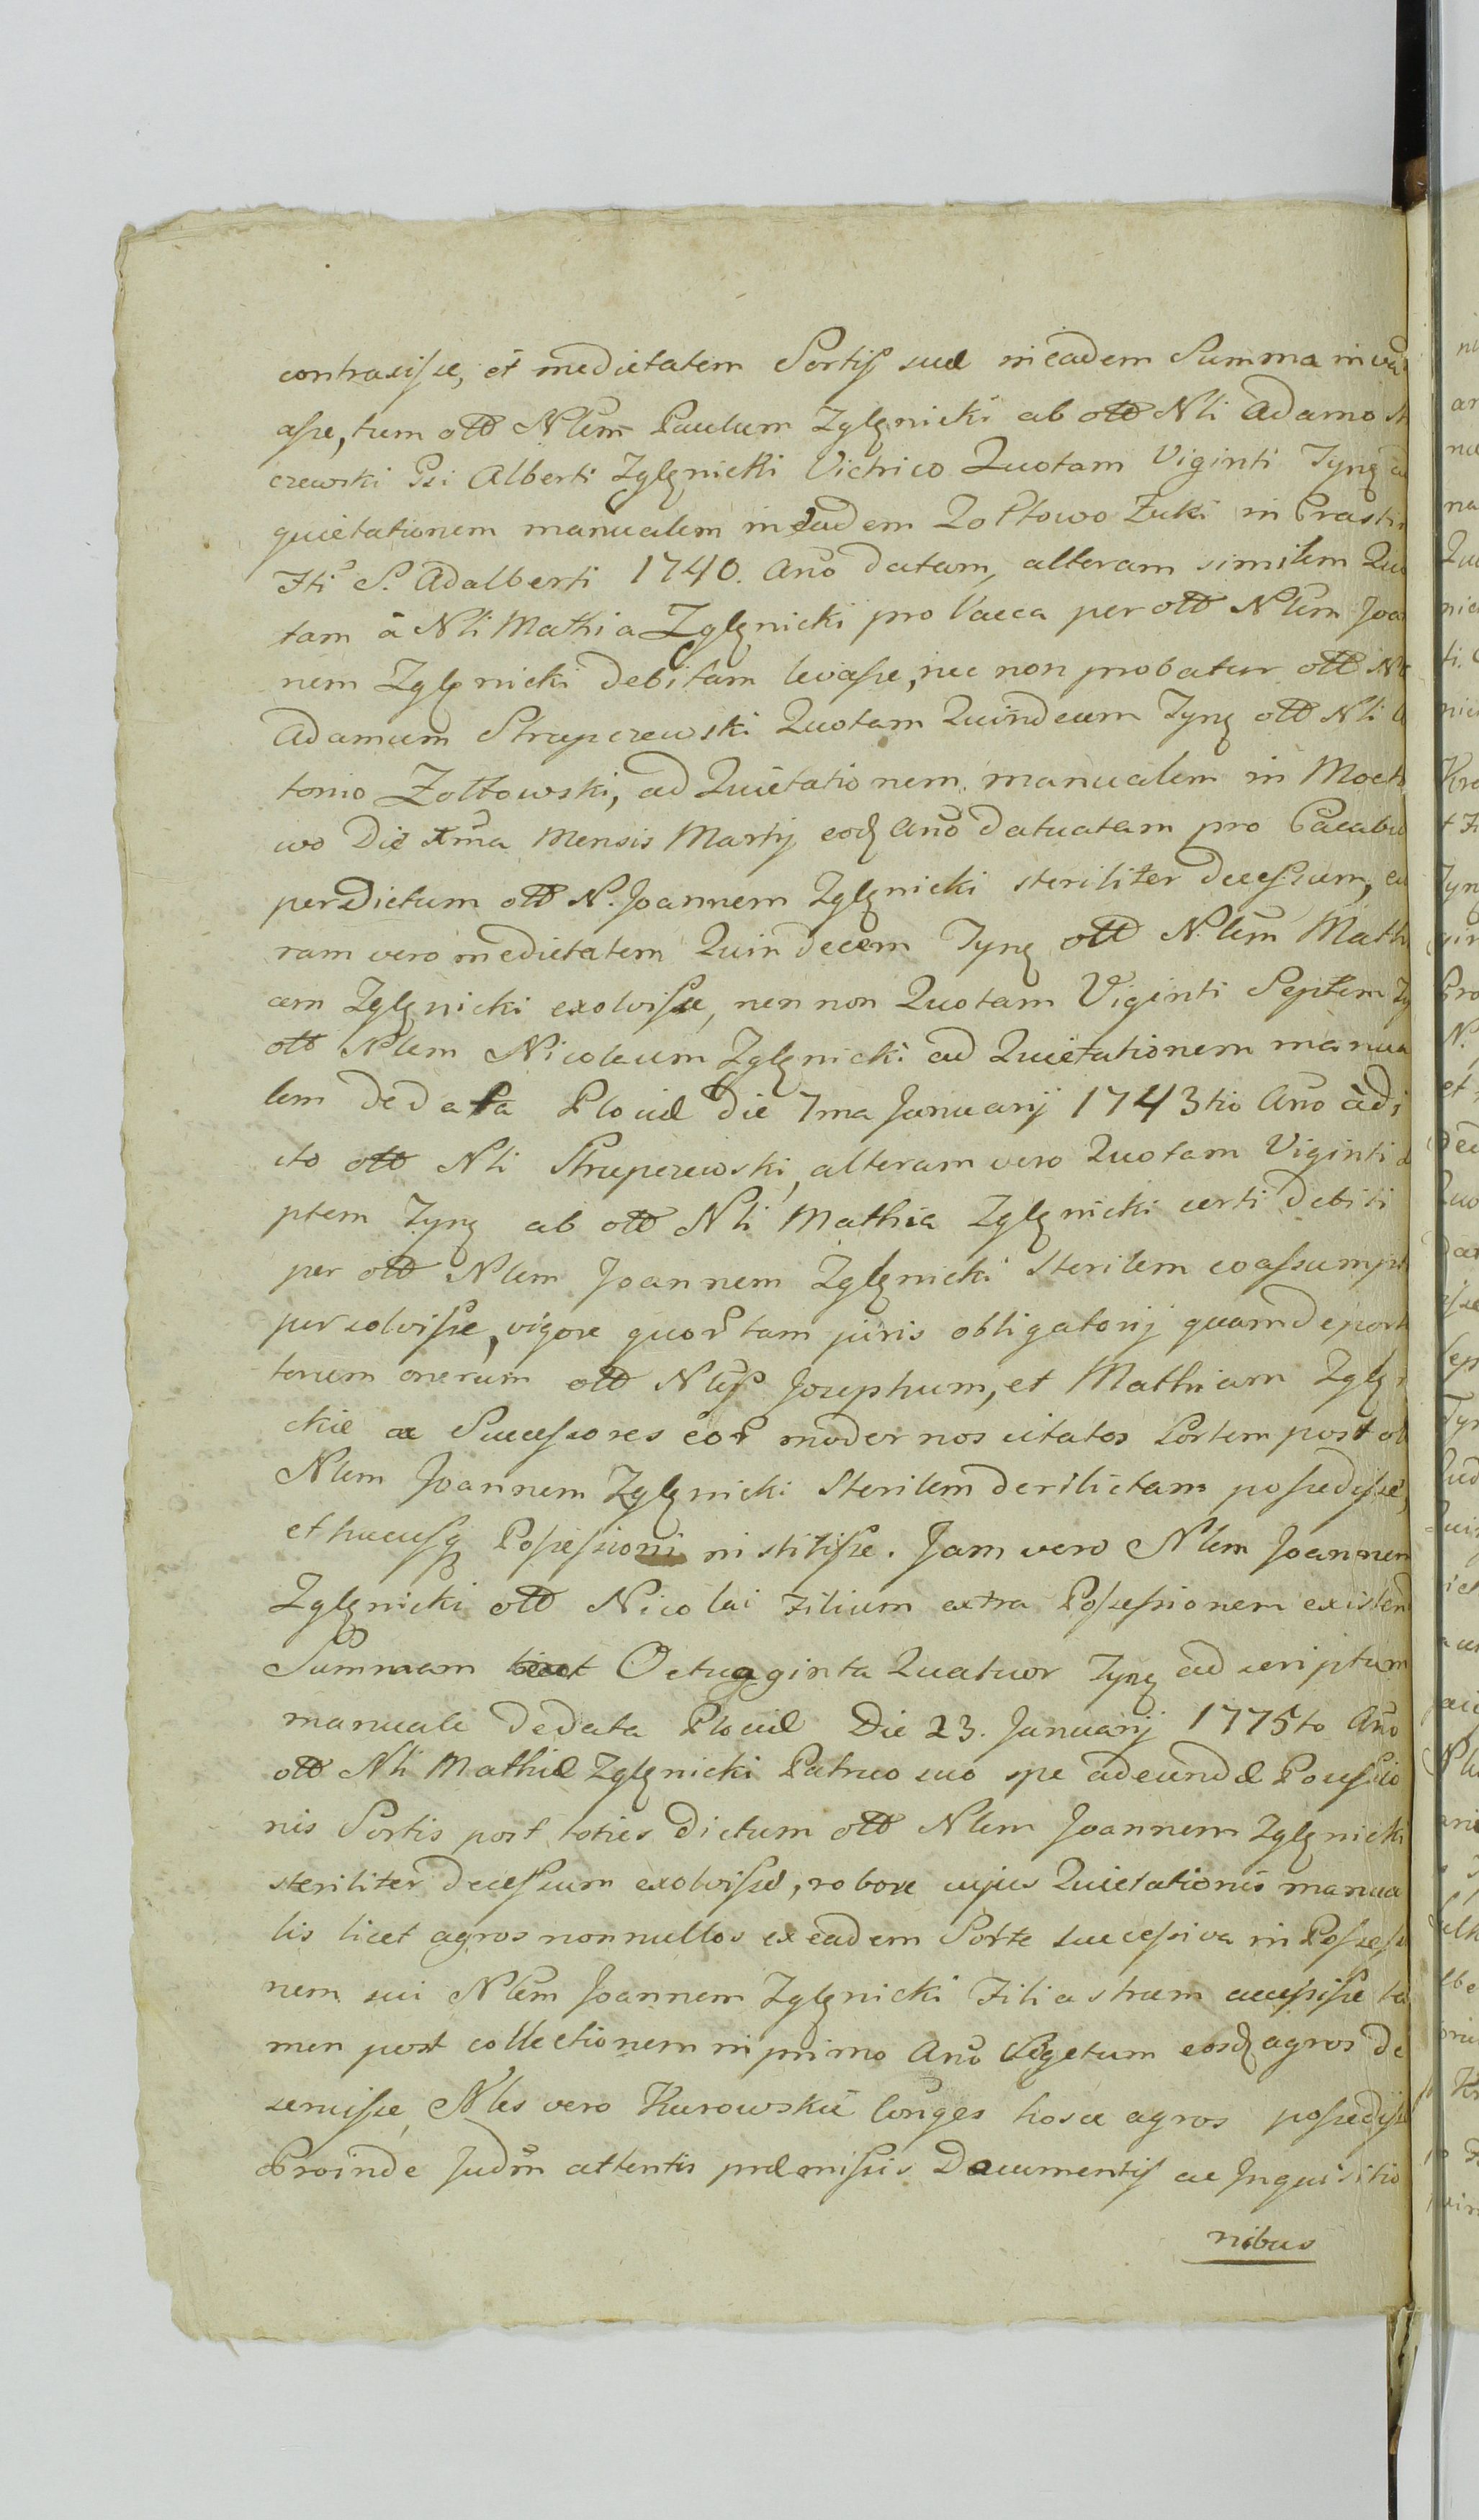 contraxisse, et medietatem Sortis suæ in eadem Summa inva
asse, tum olto Nlem Paulum Zglęnicki ab olto Nli Adamo St
czewski Psi Alberti Zglęnicki Victrico Quotam Viginti Tynq ad
quietationem manualem in eadem Zołtowo Zuki in Crasti
Fti S. Adalberti 1740. Ano datam, alteram similem Quo
tam a Nli Mathia Zglęnicki pro Vacca per olto Nlem Joa
nem Zglęnicki debitam levasse, nec non probatur olto Nl
Adamum Strupczewski Quotam Quindecem Tynq olto Nli A
tonio Zołtowski, ad Quietationem manualem in Moch
wo Die Xma Mensis Martij eodq Ano datuatam pro Pacabu
per Dictum olto N. Joannem Zglęnicki steriliter decessum, cu
ram vero medietatem Quindecem Tynq olto Nlem Math
am Zglęnicki exolvisse, nen non Quotam Viginti Septem Ty
olto Nlem Nicolaum Zglęnicki ad Quietationem manua
lem de data Plociæ die 7ma Januarij 1743tio Ano adi
cto olto Nli Strupczewski, alteram vero Quotam Viginti
ptem Tynq ab olto Nli Mathia Zglęnicki certi debiti
per olto Nlem Joannem Zglęnicki Sterilem coassumpt
persolvisse, vigore quor tam juris obligatorij quam deport
torum onerum olto Nles Josephum, et Mathiam Zglęni
ckie ac Successores eor modernos citatos Sortem post ol
Nlem Joannem Zglęnicki Sterilem derilictam possedisse,
et hucusq Possessioni institisse. Jam vero Nlem Joannem
Zglęnicki olto Nicolai Filium extra Possessionem existen
Summam Octugginta Quatuor Tynq ad scriptum
manuale de data Plociæ Die 23. Januarij 1775to Ano
olto Nli Mathiæ Zglęnicki Patruo suo spe adeundæ Possessio
nis Sortis post toties dictum olto Nlem Joannem Zglęnicki
steriliter decessum exolvisse, robore cujus Quietationis manua
lis licet agros nonnullos ex eadem Sorte successiva in Possess
nem sui Nlem Joannem Zglęnicki Filiastrum accepisse ta
men post collectionem in primo Ano Segetum eosdq agros de
seruisse, Nles vero Kurowskie longes hosce agros possedisse
Proinde Judm attentis præmissis Documentis ac Inquisitio
nibus